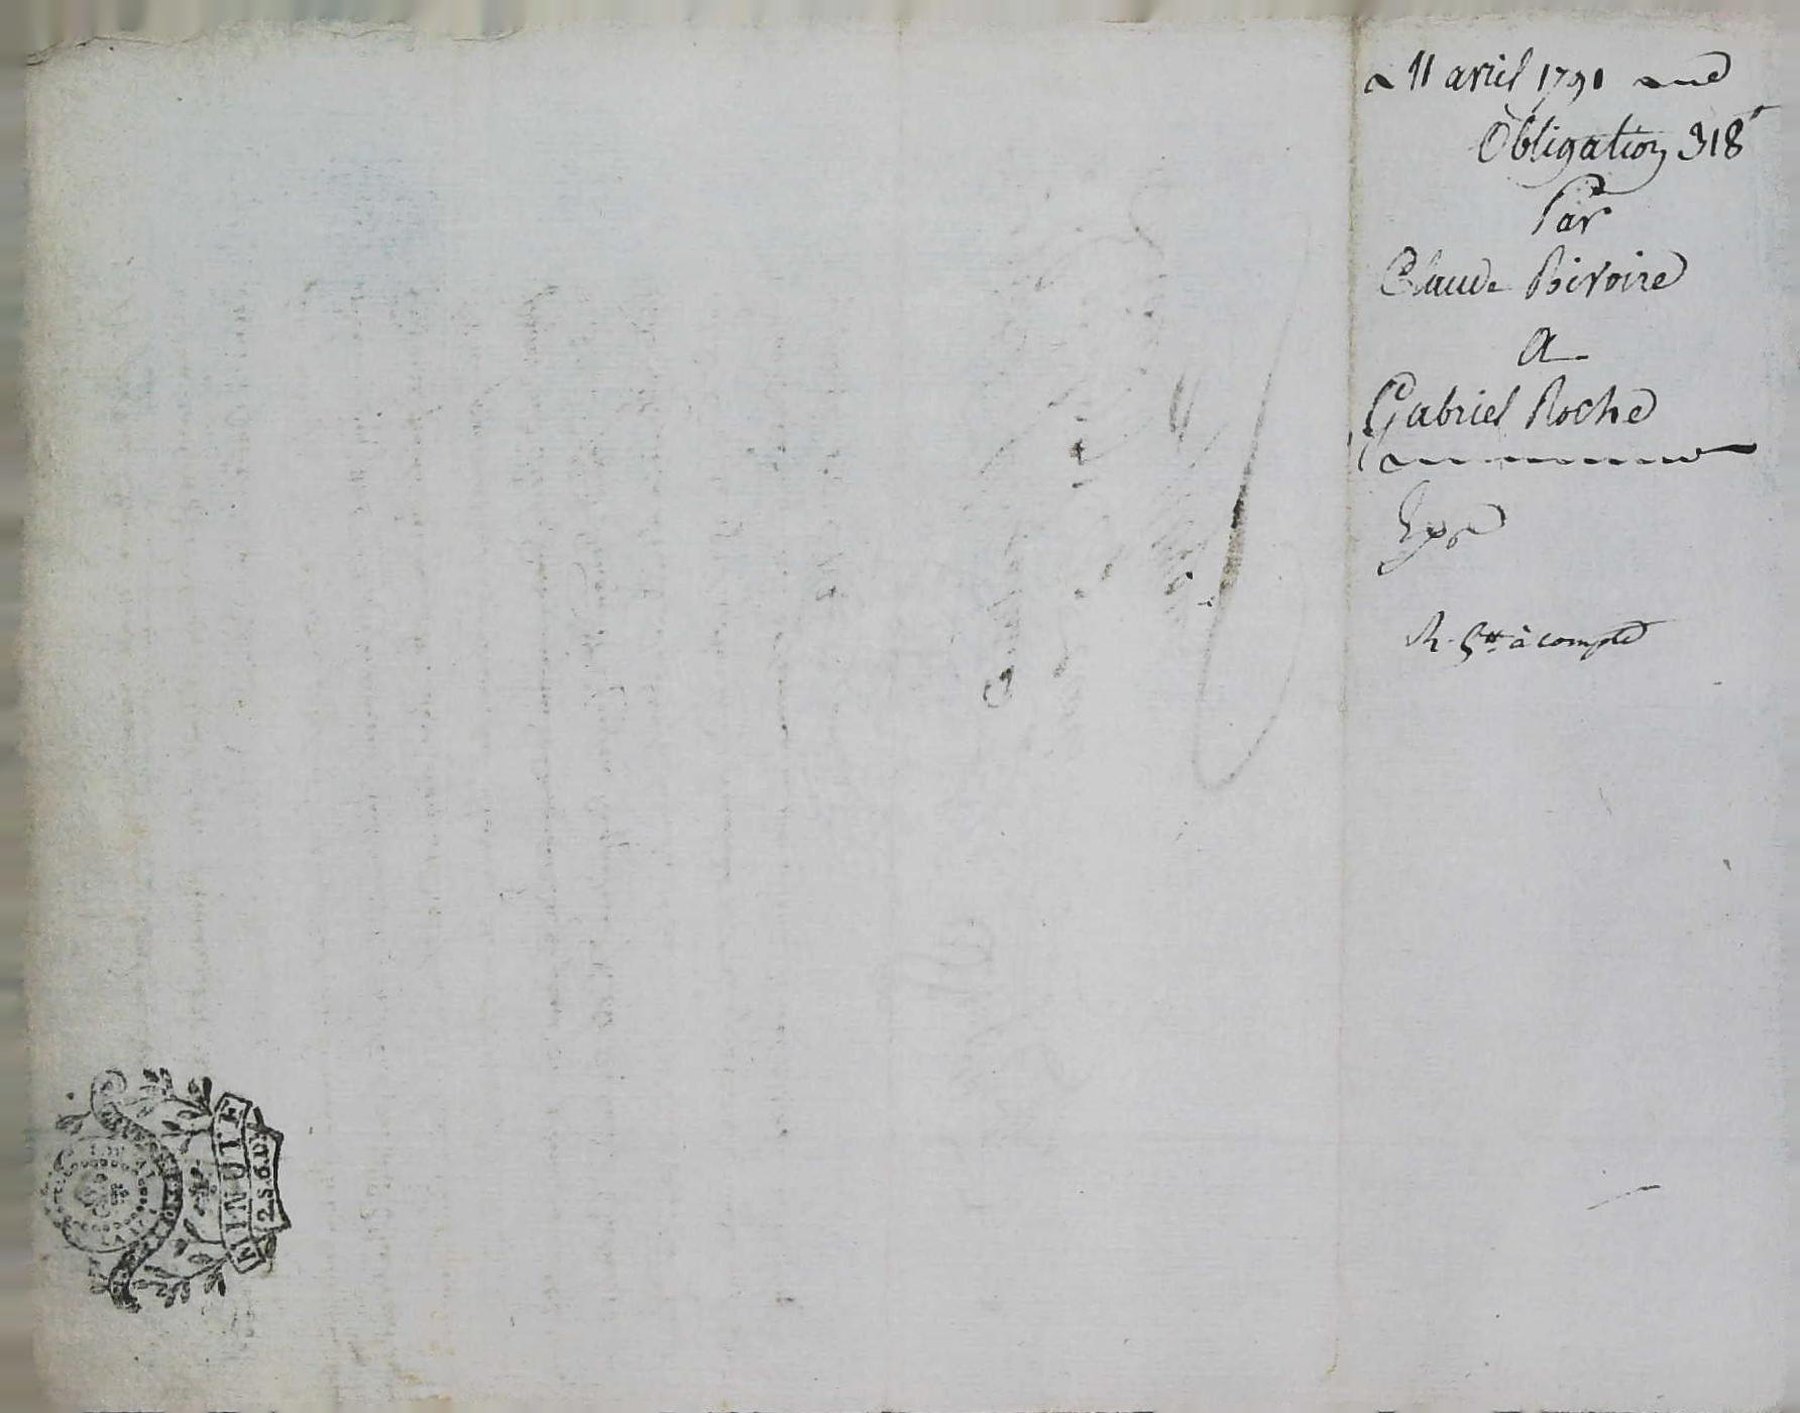 11 avril 1791
Obligation 318
Par
Claude Bivoire
a
Gabriel Roche
Exp
R. 5# à compte
MINUTE
2.S.6.D.